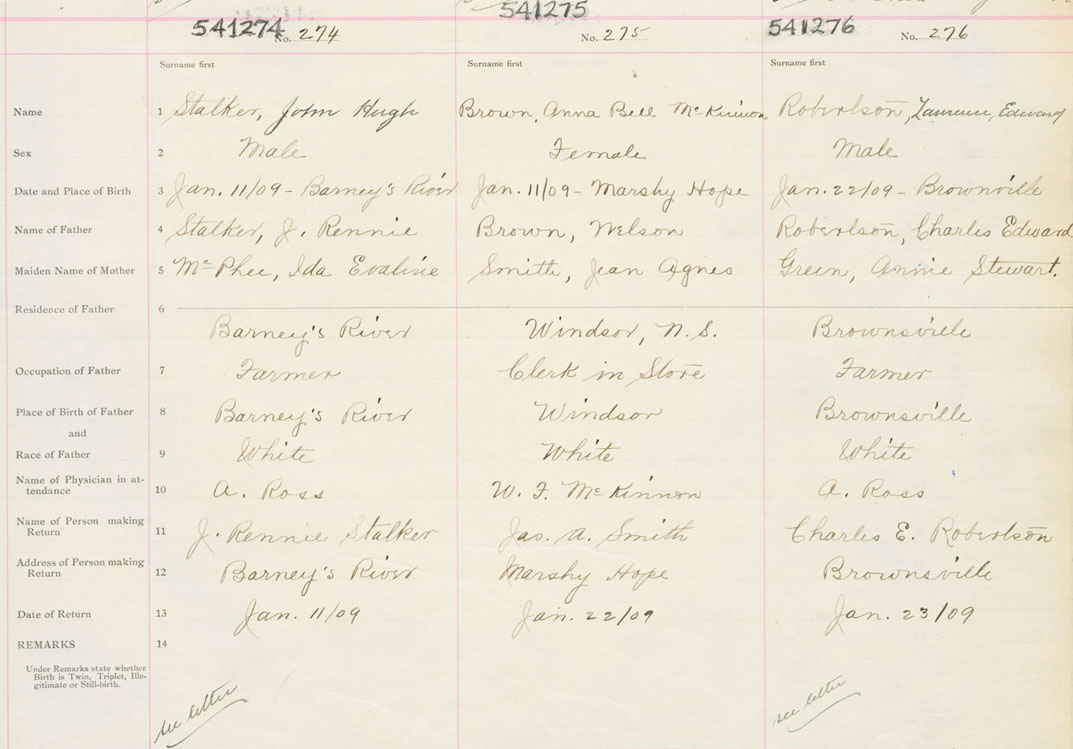 541274 No. 274
541275 No. 275
541276 No. 276
Surname first Surname first Surname first
Name 1 Stalker, John Hugh Brown, Anna Bell McKinnon Robertson, Laurence Edward
Sex 2 Male Female Male
Date and Place of Birth 3 Jan. 11/09 - Barney's River Jan. 11/09 - Marshy Hope Jan. 22/09 - Brownville
Name of Father 4 Stalker, J. Rennie Brown, Nelson Robertson, Charles Edward
Maiden Name of Mother 5 McPhee, Ida Evaline Smith, Jean Agnes Green, Annie Stewart.
Residence of Father 6
Barney's River Windsor, N.S. Brownsville
Occupation of Father 7 Farmer Clerk in Store Farmer
Place of Birth of Father 8 Barney's River Windsor Brownsville
and
Race of Father 9 White White White
Name of Physician in at-
tendance 10 A. Ross W. F. McKinnon A. Ross
Name of Person making
Return 11 J. Rennie Stalker Jas. A. Smith Charles E. Robertson
Address of Person making
Return 12 Barney's River Marshy Hope Brownsville
Date of Return 13 Jan. 11/09 Jan. 22/09 Jan. 23/09
REMARKS 14
Under Remarks state whether
Birth is Twin, Triplet, Ille-
gitimate or Still-birth.
see letter see letter